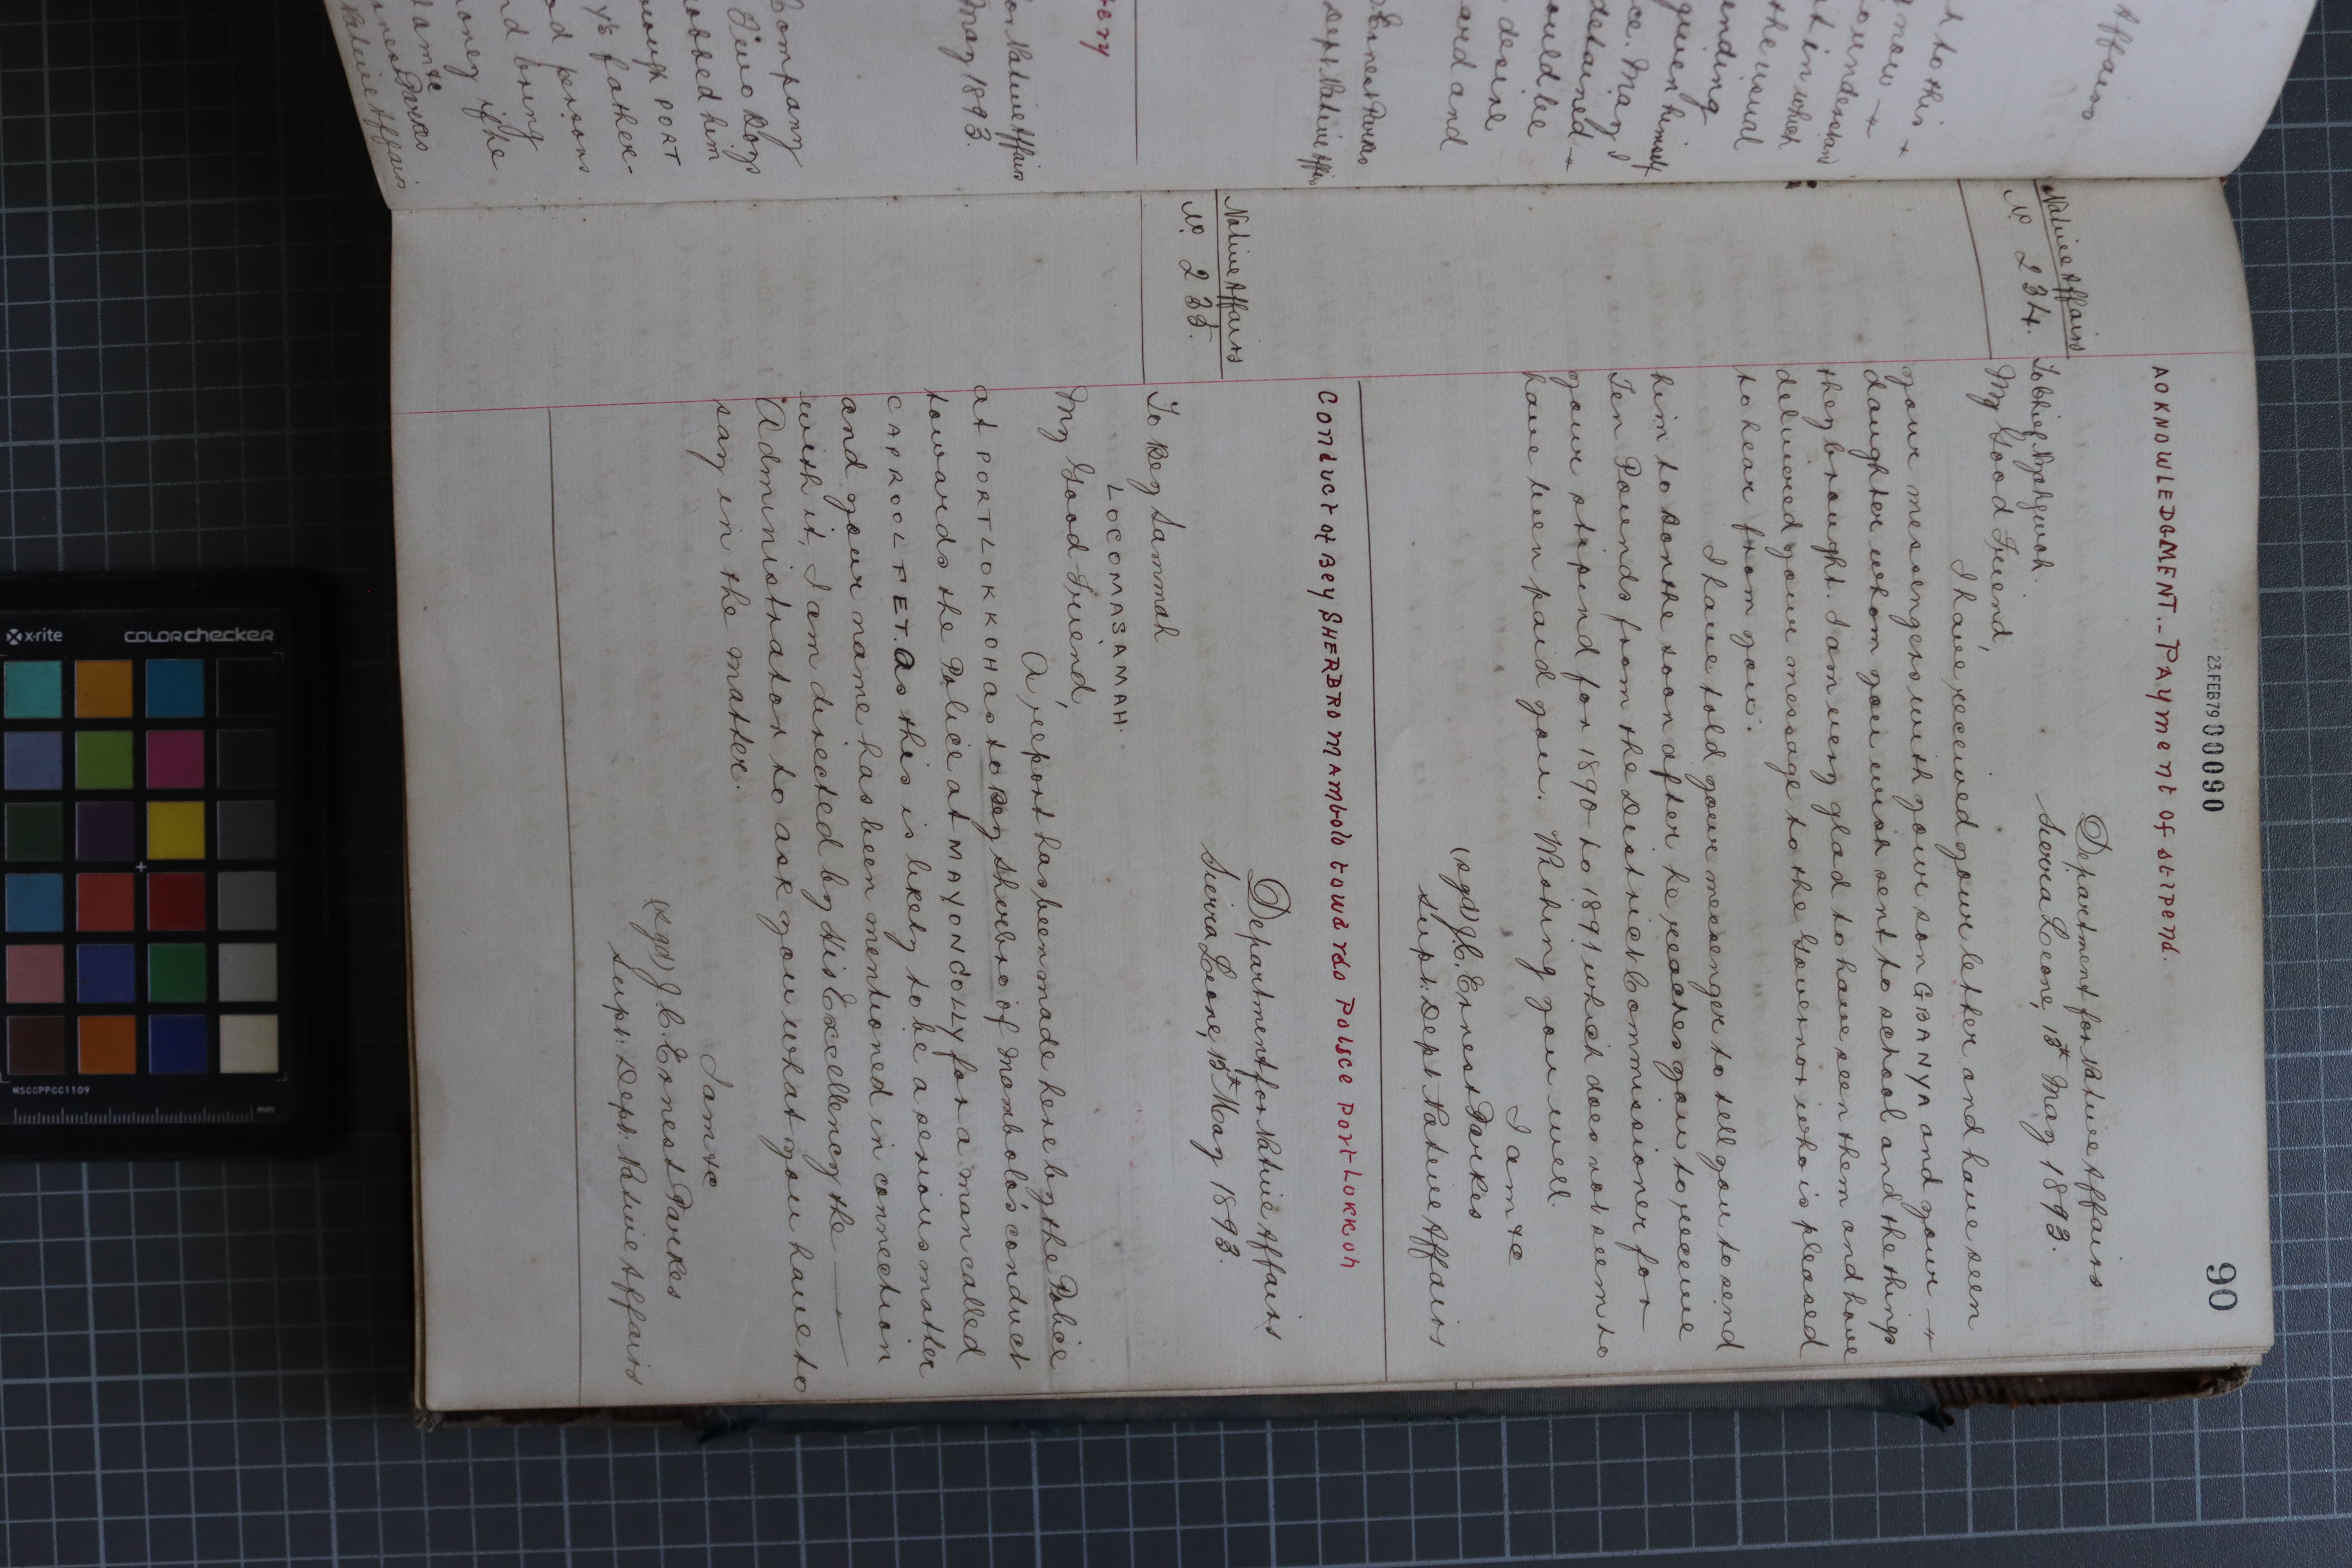 23.FEB79 00090
90
AOKNOWLEDGMENT.- PAYment of stipend.
Native Affairs
No 234.
Department for Native Affairs
Sierra Leone, 15th May 1893.
To Chief
My Good Friend,
I have received your letter and have seen
your messengers with your son GBANYA and your
daughter whom you wish sent to school and the things
they brought. I am very glad to have seen them and have
delivered your message to the Governor who is pleased
to hear from you.
I have told your messenger to tell you to send
him to Bonthe soon after he reaches you to receive
Ten Pounds from the District Commissioner for
your stipend for 1890 to 1891 which does not seem to
have been paid you. Wishing you well.
I am &c
(sgd) J.C. Ernest Parkes
Supt: Dept Native Affairs
Conduct of Bey SHERBRO MAmbolo towards Police Port Lokkoh
Native Affairs
No 235.
Department for Native Affairs
Sierra Leone, 15th May 1893.
To Bey Sammah
LOCOMASAMAH.
My Good Friend,
A report has been made here by the Police
at PORTLOKKOH as to Bey Sherbro of Mambolo's conduct
towards the Police at MAYONCOLLY for a man called
CAPROOLFET. As this is likely to be a serious matter
and your name has been mentioned in connection
with it, I am directed by His Excellency the
Administrator to ask you what you have to
say in the matter.
I am &c
(sgd) J.C. Ernest Parkes
Supt: Dept: Native Affairs
Affairs
t to this
know
understand
t in which
the usual
ending
given himself
ce. May I
detained
ould be
desire
ard and
Ernest Parkes
Dept Native Affairs
ery
for Native Affairs
May 1893.
Company
Two Boys
robbed him
rough PORT
y's father-
d persons
nd bring
oney if he
I am &c
nest Parkes
Native Affairs
x-rite
COLORchecker
MSCCPPCC1109
mm